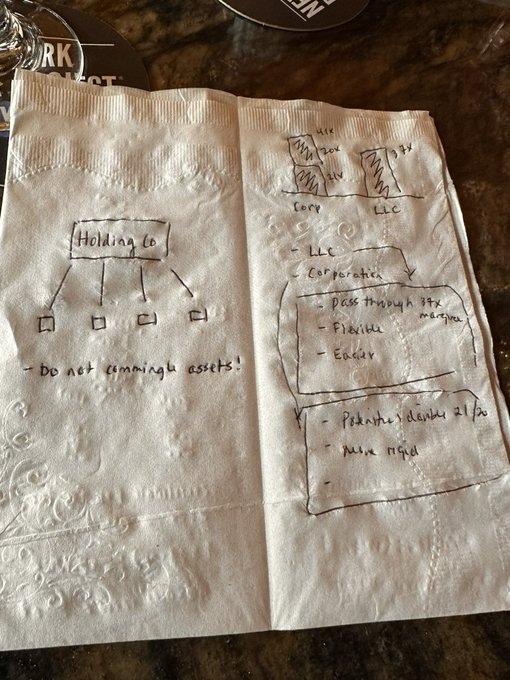 RK
Holding Co
- Do not commingle assets!
41%
20%
21%
37%
Corp
LLC
- LLC
- Corporation
- Pass through 37%
- Flexible
- Easier
- double 21/20
- More rigid
-